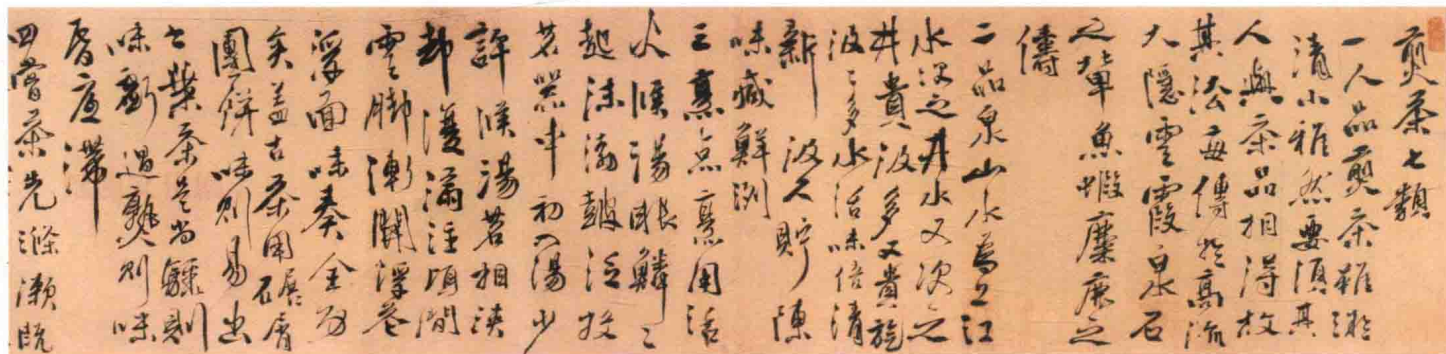 煎茶七類
一人品煎茶雖凝
清小雅然要須其
人與茶品相得故
其法每傳於高流
大隱雲霞泉石
之輩魚蝦麋鹿之
儔
二品泉山水為上江
水次之井水又次之
井貴汲多又貴旋
汲汲多水活味倍清
新汲久貯陳
味減鮮冽
三烹点烹用活
火候湯眼鱗鱗
起沫浡鼓泛投
茗器中初入湯少
許候湯茗相浹
卻復滿注頃間
雲腳漸開浮花
浮面味奏全功
矣蓋古茶用碾屑
團餅味則易出
今葉茶是尚驟則
味虧過熟則味
昏底滯
四嘗茶先滌漱既